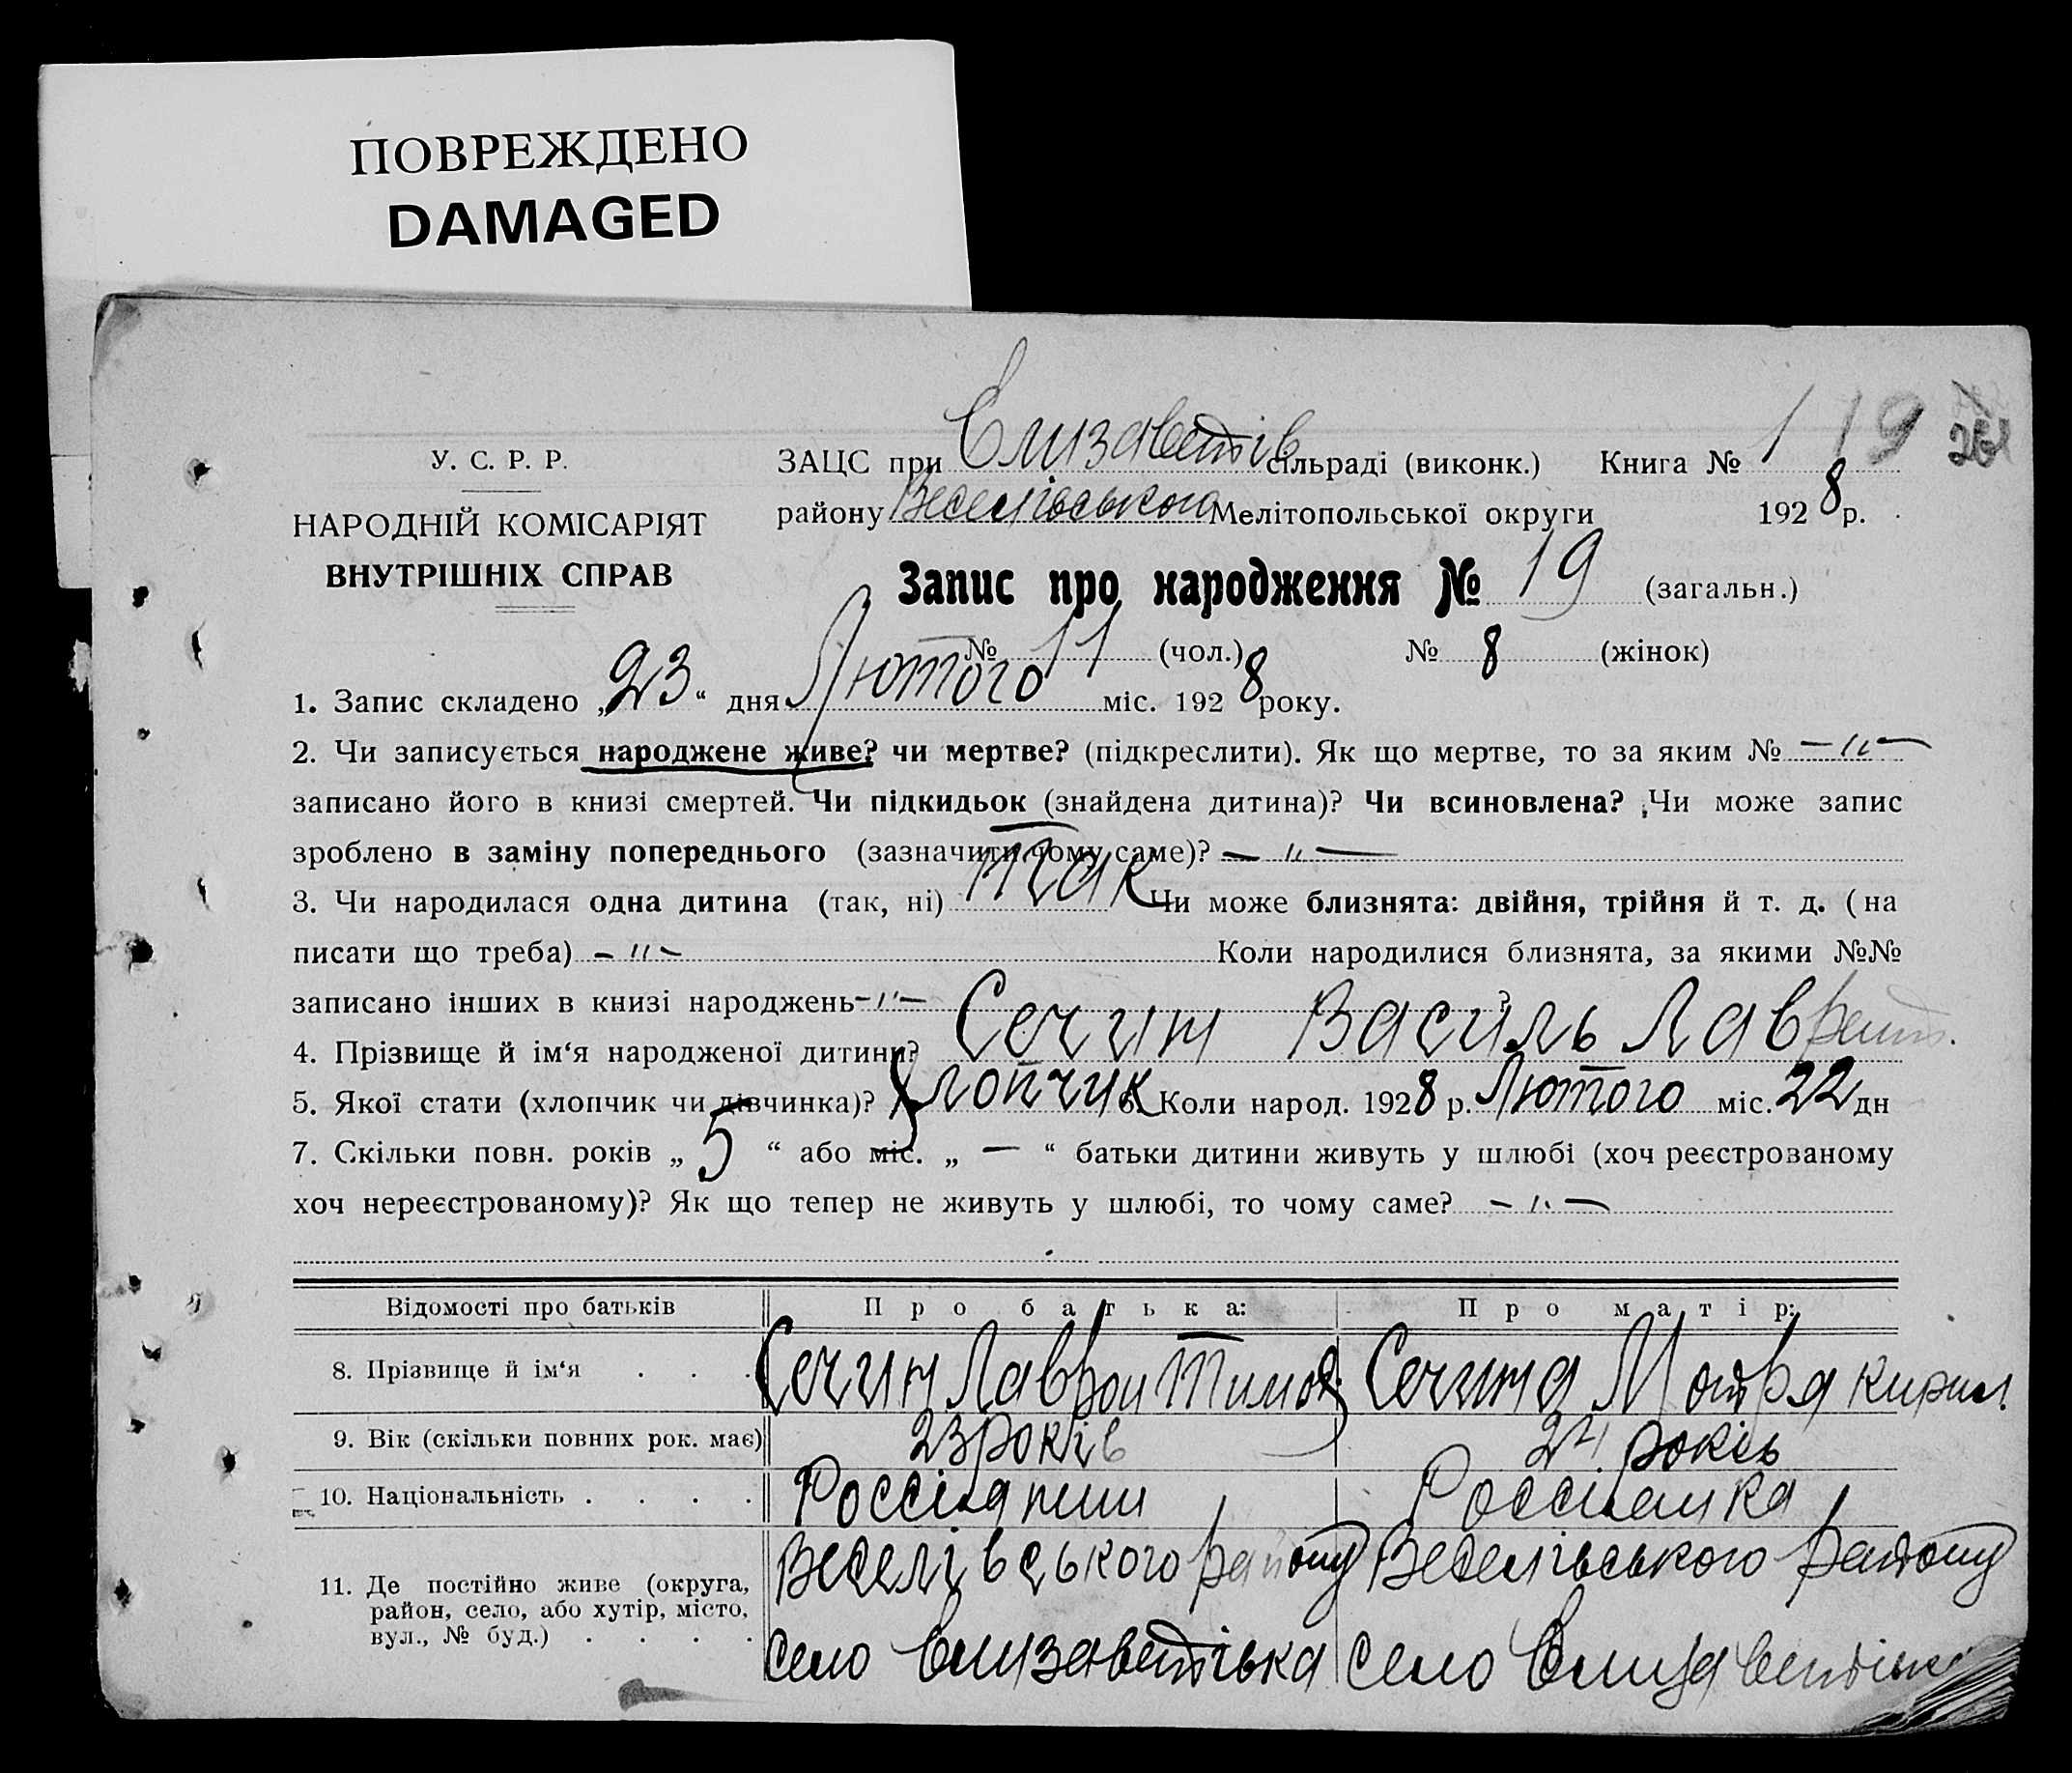 ПОВРЕЖДЕНО
DAMAGED
У. С. Р. Р.
НАРОДНІЙ КОМІСАРІЯТ
ВНУТРІШНІХ СПРАВ
ЗАЦС при Єлизаветів сільраді (виконк.) Книга № 1 19
району Веселівського Мелітопольської округи 1928 р.
Запис про народження № 19 (загальн.)
№ 11 (чол.) № 8 (жінок)
1. Запис складено „23“ дня Лютого міс. 1928 року.
2. Чи записується народжене живе? чи мертве? (підкреслити). Як що мертве, то за яким № – " –
записано його в книзі смертей. Чи підкидьок (знайдена дитина)? Чи всиновлена? Чи може запис
зроблено в заміну попереднього (зазначити чому саме)? – " –
3. Чи народилася одна дитина (так, ні) так Чи може близнята: двійня, трійня й т. д. (на
писати що треба) – " – Коли народилися близнята, за якими №№
записано інших в книзі народжень – " – ?
4. Прізвище й ім‘я народженої дитини? Сечин Василь Лаврент.
5. Якої стати (хлопчик чи дівчинка)? Хлопчик 6. Коли народ. 1928 р. Лютого міс. 22 дн
7. Скільки повн. років „ 5 “ або міс. „ — “ батьки дитини живуть у шлюбі (хоч реєстрованому
хоч нереєстрованому)? Як що тепер не живуть у шлюбі, то чому саме? – " –
Відомості про батьків Про батька: Про матір:
8. Прізвище й ім‘я . . . Сечин Лаврон Тимоф. Сечина Мотря Кирил.
9. Вік (скільки повних рок. має) 23 років 24 років
10. Національність . . . . Россіянин Россіянка
11. Де постійно живе (округа, район, село, або хутір, місто, вул., № буд.) . . . . Веселівського району Веселівського району
село Єлизаветівка село Єлизаветівка